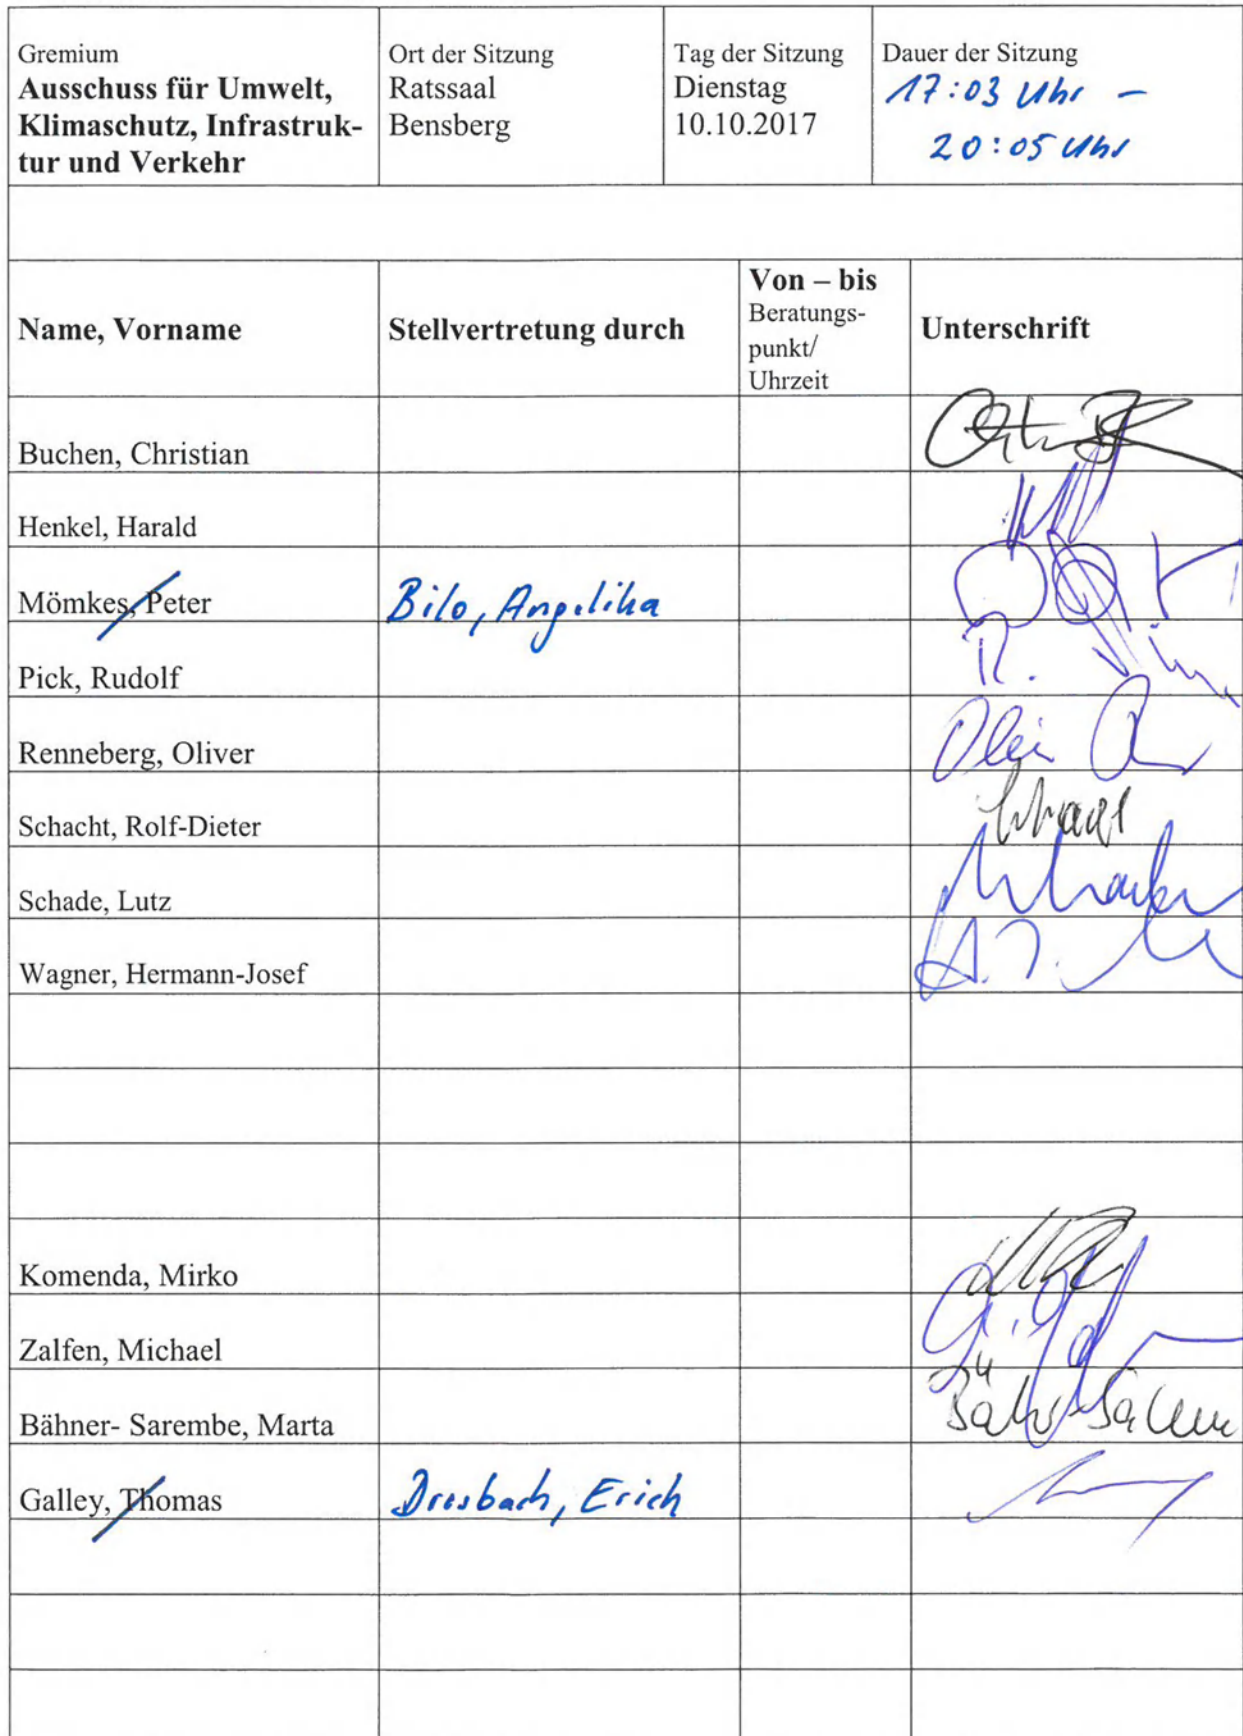 Gremium
Ausschuss für Umwelt,
Klimaschutz, Infrastruk-
tur und Verkehr
Ort der Sitzung
Ratssaal
Bensberg
Tag der Sitzung
Dienstag
10.10.2017
Dauer der Sitzung
17:03 Uhr -
20:05 Uhr
Name, Vorname
Stellvertretung durch
Von – bis
Beratungs-
punkt/
Uhrzeit
Unterschrift
Buchen, Christian
Henkel, Harald
Mömkes, Peter
Bilo, Angelika
Pick, Rudolf
Renneberg, Oliver
Schacht, Rolf-Dieter
Schade, Lutz
Wagner, Hermann-Josef
Komenda, Mirko
Zalfen, Michael
Bähner- Sarembe, Marta
Galley, Thomas
Dresbach, Erich